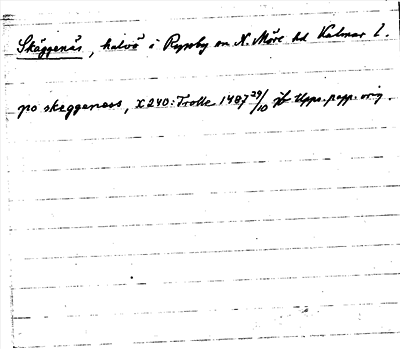 Skäggenäs, halvö i Ryssby sn N. Möre hd Kalmar l.
po skeggenæs, X 240: Trolle 1487 29/10 jb Upps. papp. orig.